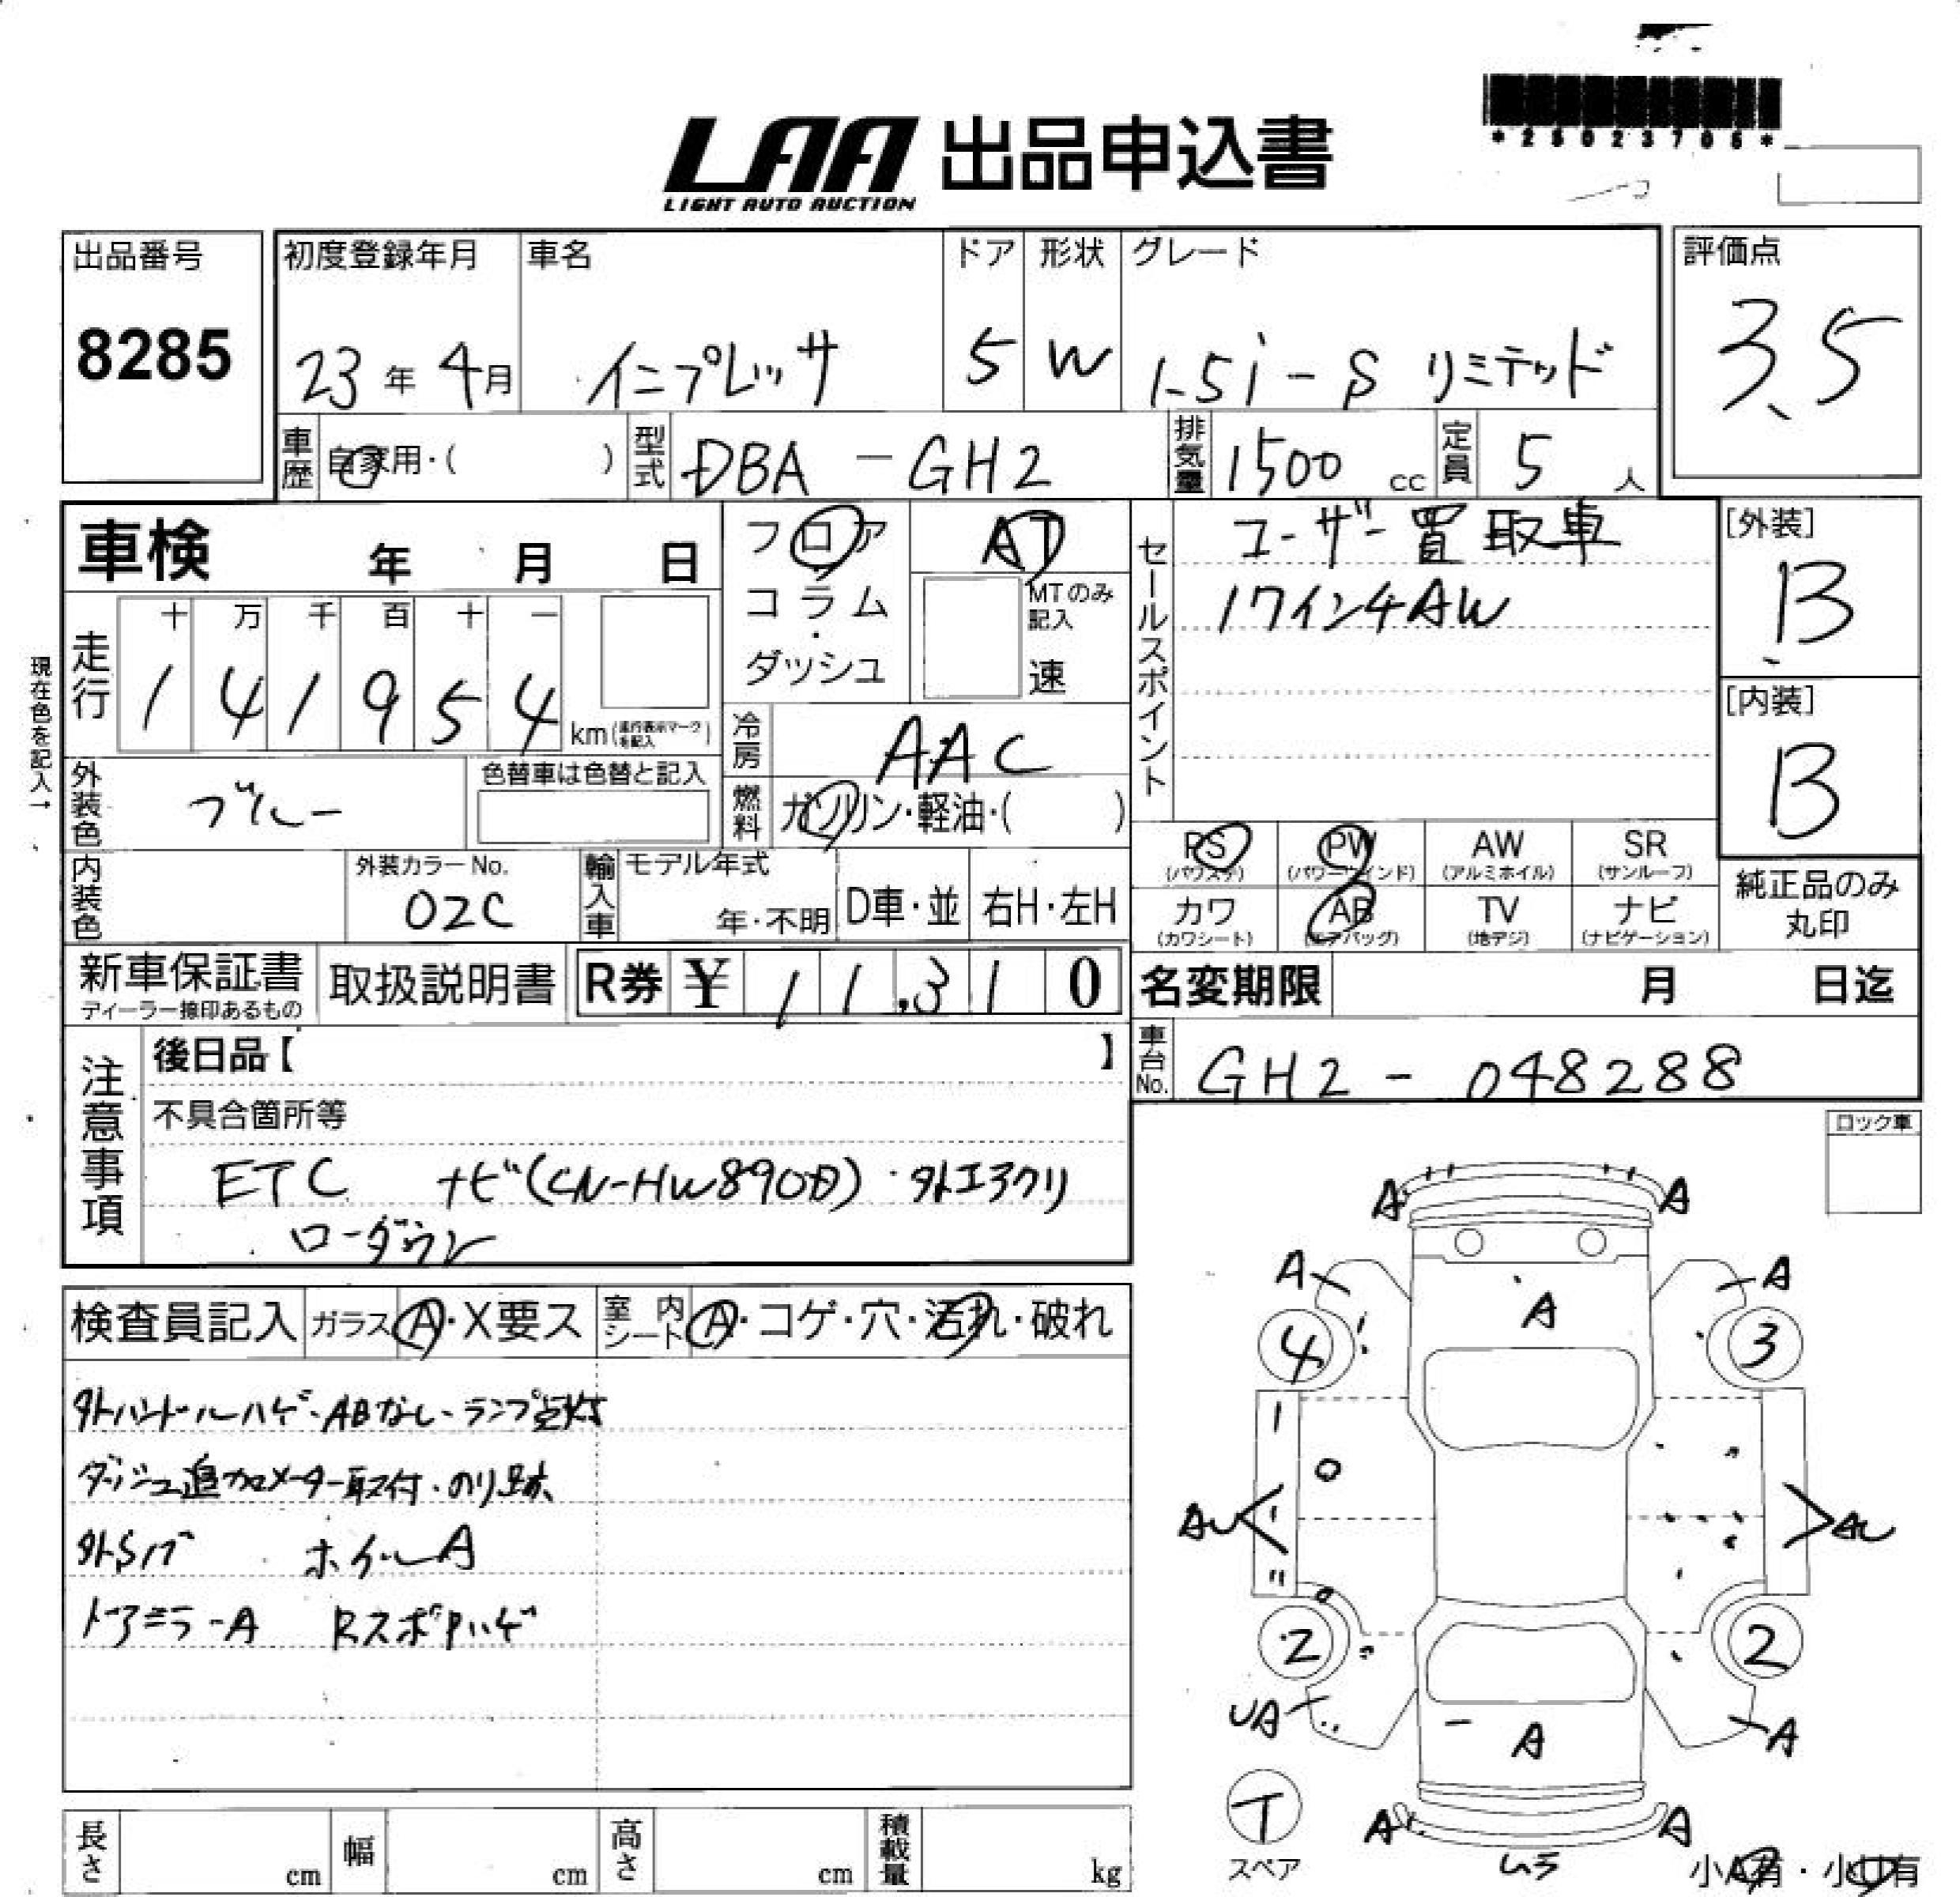 *25023705*
LAA 出品申込書
LIGHT AUTO AUCTION
出品番号
8285
初度登録年月
23年 4月
車名
インプレッサ
ドア
5
形状
W
グレード
1.5i-S リミテッド
評価点
3.5
車歴
自家用・( )
型式
DBA-GH2
排気量
1500 cc
定員
5 人
車検 年 月 日
フロア
コラム
・
ダッシュ
AT
MTのみ記入
速
セールスポイント
ユーザー買取車
17インチAW
[外装]
B
[内装]
B
現在色を記入→
走行
十 万 千 百 十 一
1 4 1 9 5 4
km(走行表示マークを記入)
冷房
AAC
燃料
ガソリン・軽油・( )
外装色
ブルー
色替車は色替と記入
内装色
外装カラーNo.
02C
輸入車
モデル年式
年・不明
D車・並
右H・左H
PS
(パワステ)
PW
(パワーウインド)
AW
(アルミホイル)
SR
(サンルーフ)
カワ
(カワシート)
AB
(エアバッグ)
TV
(地デジ)
ナビ
(ナビゲーション)
純正品のみ
丸印
新車保証書
ディーラー捺印あるもの
取扱説明書
R券 ¥ 11,310
名変期限 月 日迄
車台No.
GH2-048288
注意事項
後日品【 】
不具合箇所等
ETC ナビ(CN-HW890D)・外エアクリ
ローダウン
ロック車
検査員記入
ガラス
A・X要ス
室内シート
A・コゲ・穴・汚れ・破れ
外ハンドルハゲ・ABなし・ランプ点灯
ダッシュ追加メーター取付・のり跡
外シフ
ホイールA
ドアミラーA Rスポハゲ
A A
A A
A
4 3
AU AU
2 2
UA A
A
T
スペア
A A
ムラ
小A有・小U有
長さ cm
幅 cm
高さ cm
積載量 kg